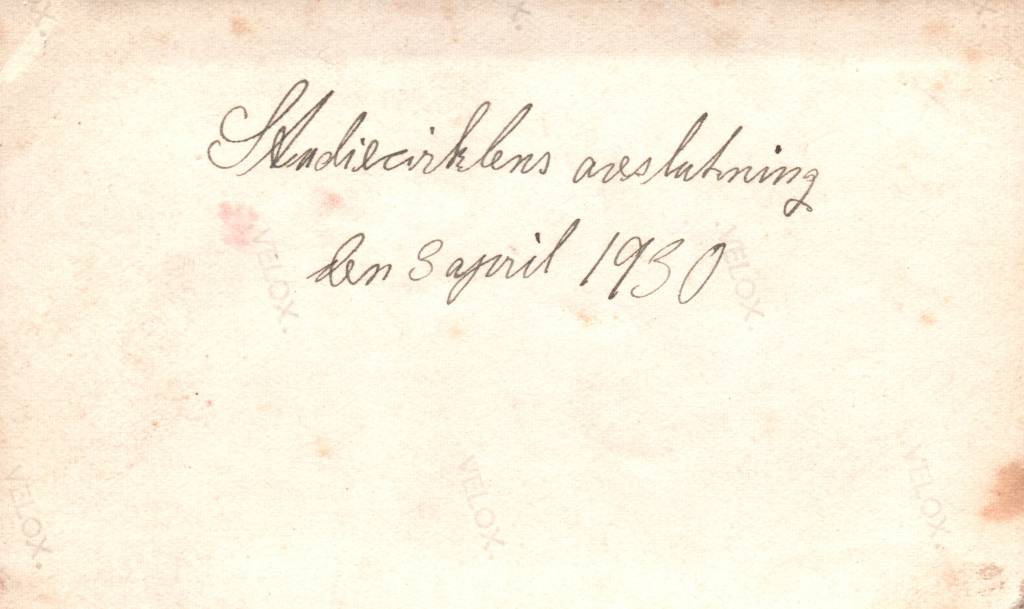 VELOX.
Studiecirklens avslutning
den 3 april 1930
VELOX.
VELOX.
VELOX.
VELOX.
VELOX.